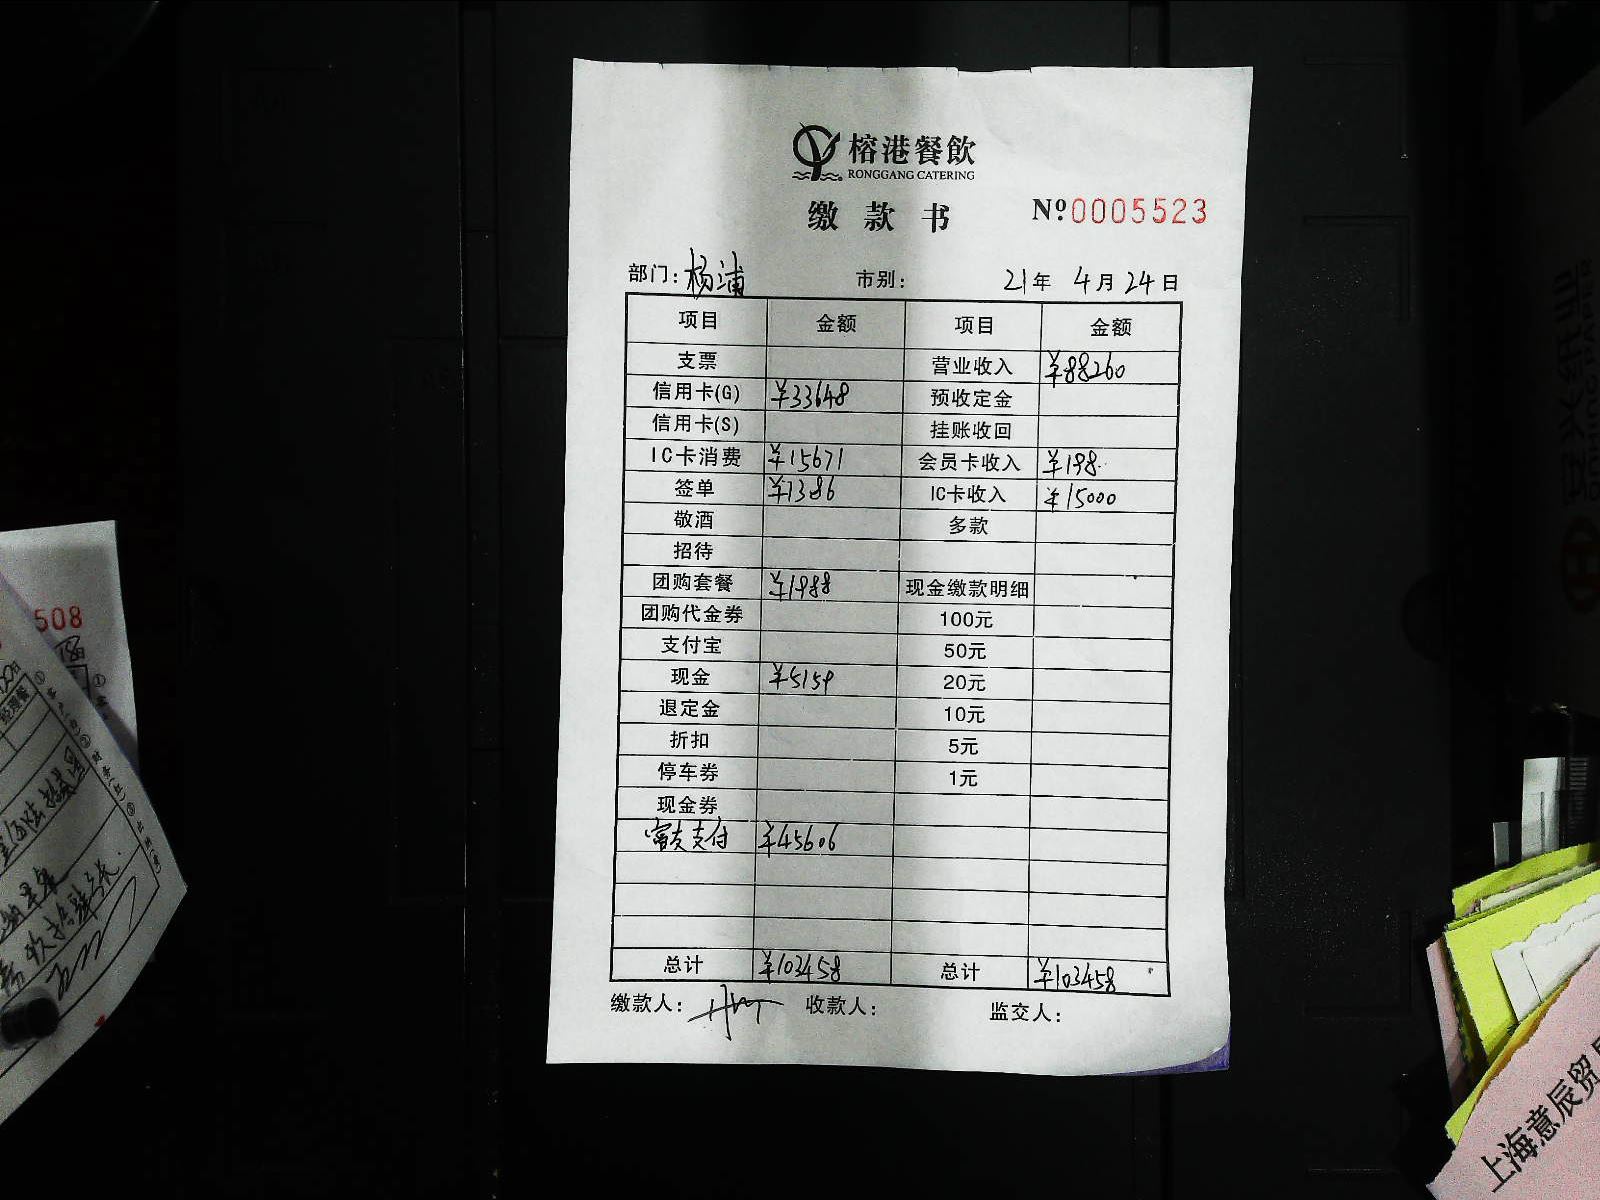 榕港餐飲
RONGGANG CATERING
缴款书 Nº0005523
部门：杨浦 市别： 21年 4月24日
项目 金额 项目 金额
支票 营业收入 ¥88260
信用卡(G) ¥33648 预收定金
信用卡(S) 挂账收回
IC卡消费 ¥15671 会员卡收入 ¥198
签单 ¥1386 IC卡收入 ¥15000
敬酒 多款
招待
团购套餐 ¥1988 现金缴款明细
团购代金券 100元
支付宝 50元
现金 ¥5159 20元
退定金 10元
折扣 5元
停车券 1元
现金券
富友支付 ¥45606
总计 ¥103458 总计 ¥103458
缴款人： 收款人： 监交人：
508
上海意辰贸